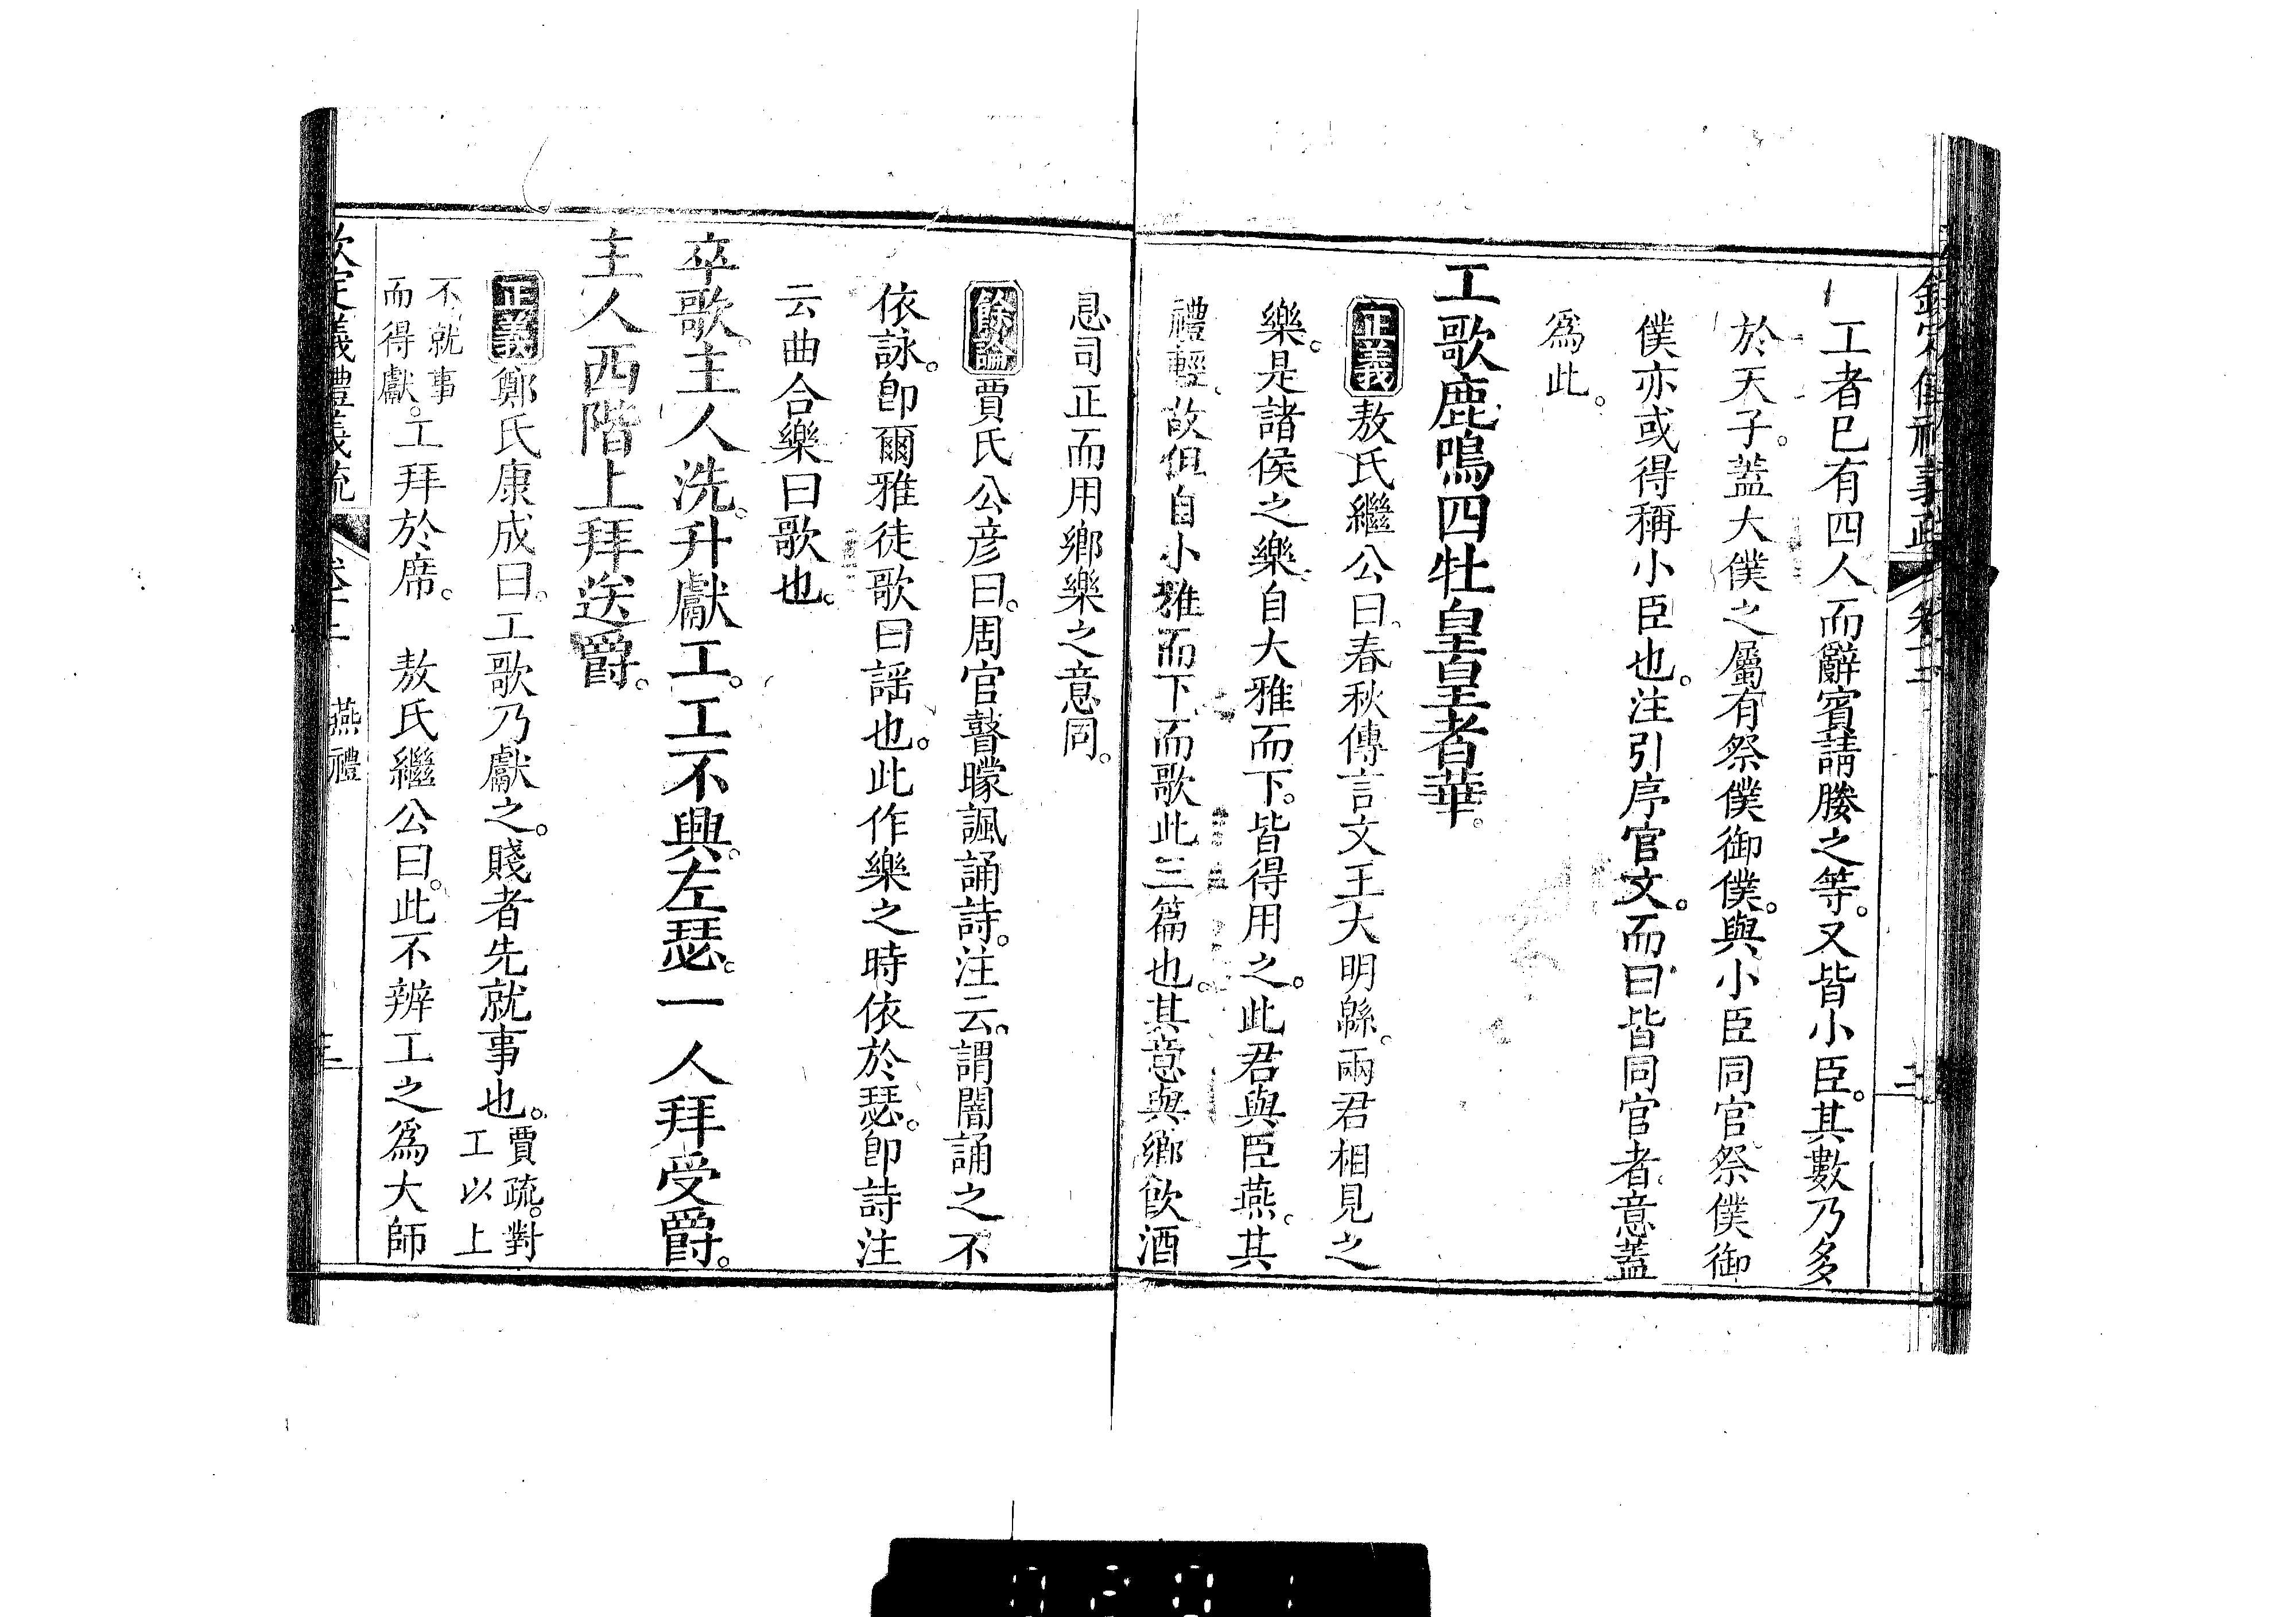 工者已有四人而辭賓請媵之等。又皆小臣。其數乃多
於天子。蓋大僕之屬有祭僕御僕。與小臣同官。祭僕御
僕亦或得稱小臣也。注引序官文。而曰皆同官者。意蓋
爲此。
工歌鹿鳴四牡皇皇者華。
正義敖氏繼公曰。春秋傳言文王大明緜。兩君相見之
樂。是諸侯之樂。自大雅而下。皆得用之。此君與臣燕。其
禮輕。故但自小雅而下。而歌此三篇也。其意與鄉飲酒
息司正而用鄉樂之意同。
餘論賈氏公彦曰。周官瞽矇諷誦詩。注云。謂闇誦之不
依詠。卽爾雅徒歌曰謡也。此作樂之時依於瑟。卽詩注
云曲合樂曰歌也。
卒歌。主人洗。升獻工。工不興。左瑟。一人拜受爵。
主人西階上拜送爵。
正義鄭氏康成曰。工歌乃獻之。賤者先就事也。賈疏。對
工以上
不就事
而得獻。工拜於席。 敖氏繼公曰。此不辨工之爲大師
欽定儀禮義疏 卷十二 燕禮 三